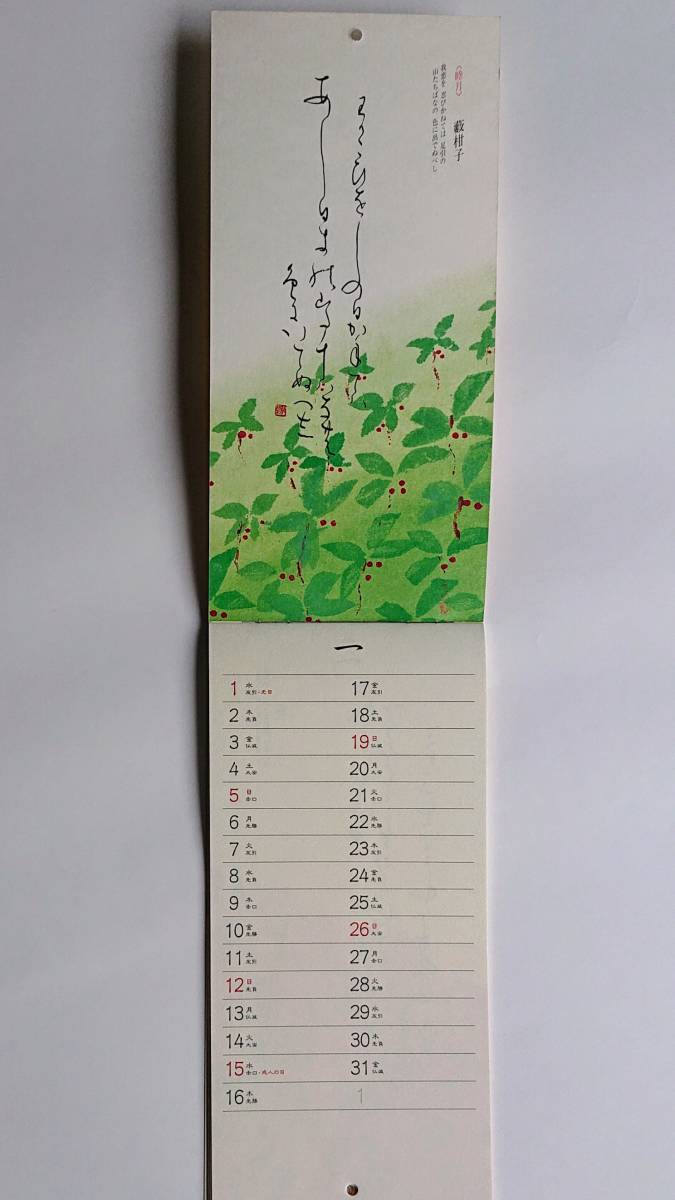 《睦月》
藪柑子
我恋を 忍びかねては 足引の
山たちばなの 色に出でぬべし
一
1 水 友引・元日
2 木 先負
3 金 仏滅
4 土 大安
5 日 赤口
6 月 先勝
7 火 友引
8 水 先負
9 木 赤口
10 金 先勝
11 土 友引
12 日 先負
13 月 仏滅
14 火 大安
15 水 赤口・成人の日
16 木 先勝
17 金 友引
18 土 先負
19 日 仏滅
20 月 大安
21 火 赤口
22 水 先勝
23 木 友引
24 金 先負
25 土 仏滅
26 日 大安
27 月 赤口
28 火 先勝
29 水 友引
30 木 先負
31 金 仏滅
1